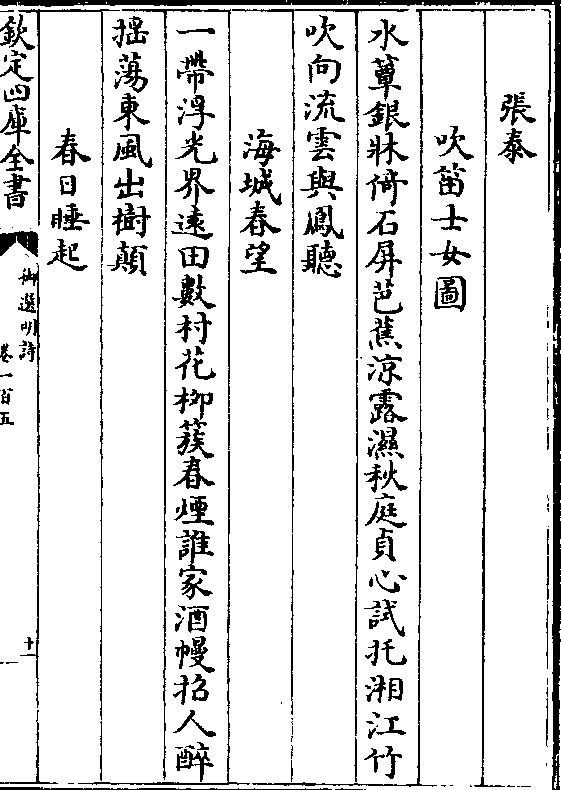 張泰
吹笛士女圖
水簟銀牀倚石屏芭蕉涼露濕秋庭貞心試托湘江竹
吹向流雲與鳳聽
海城春望
一帶浮光界遠田數村花柳簇春煙誰家酒幔招人醉
揺蕩東風出樹顛
春日睡起
欽定四庫全書
御選明詩
卷一百五
十一